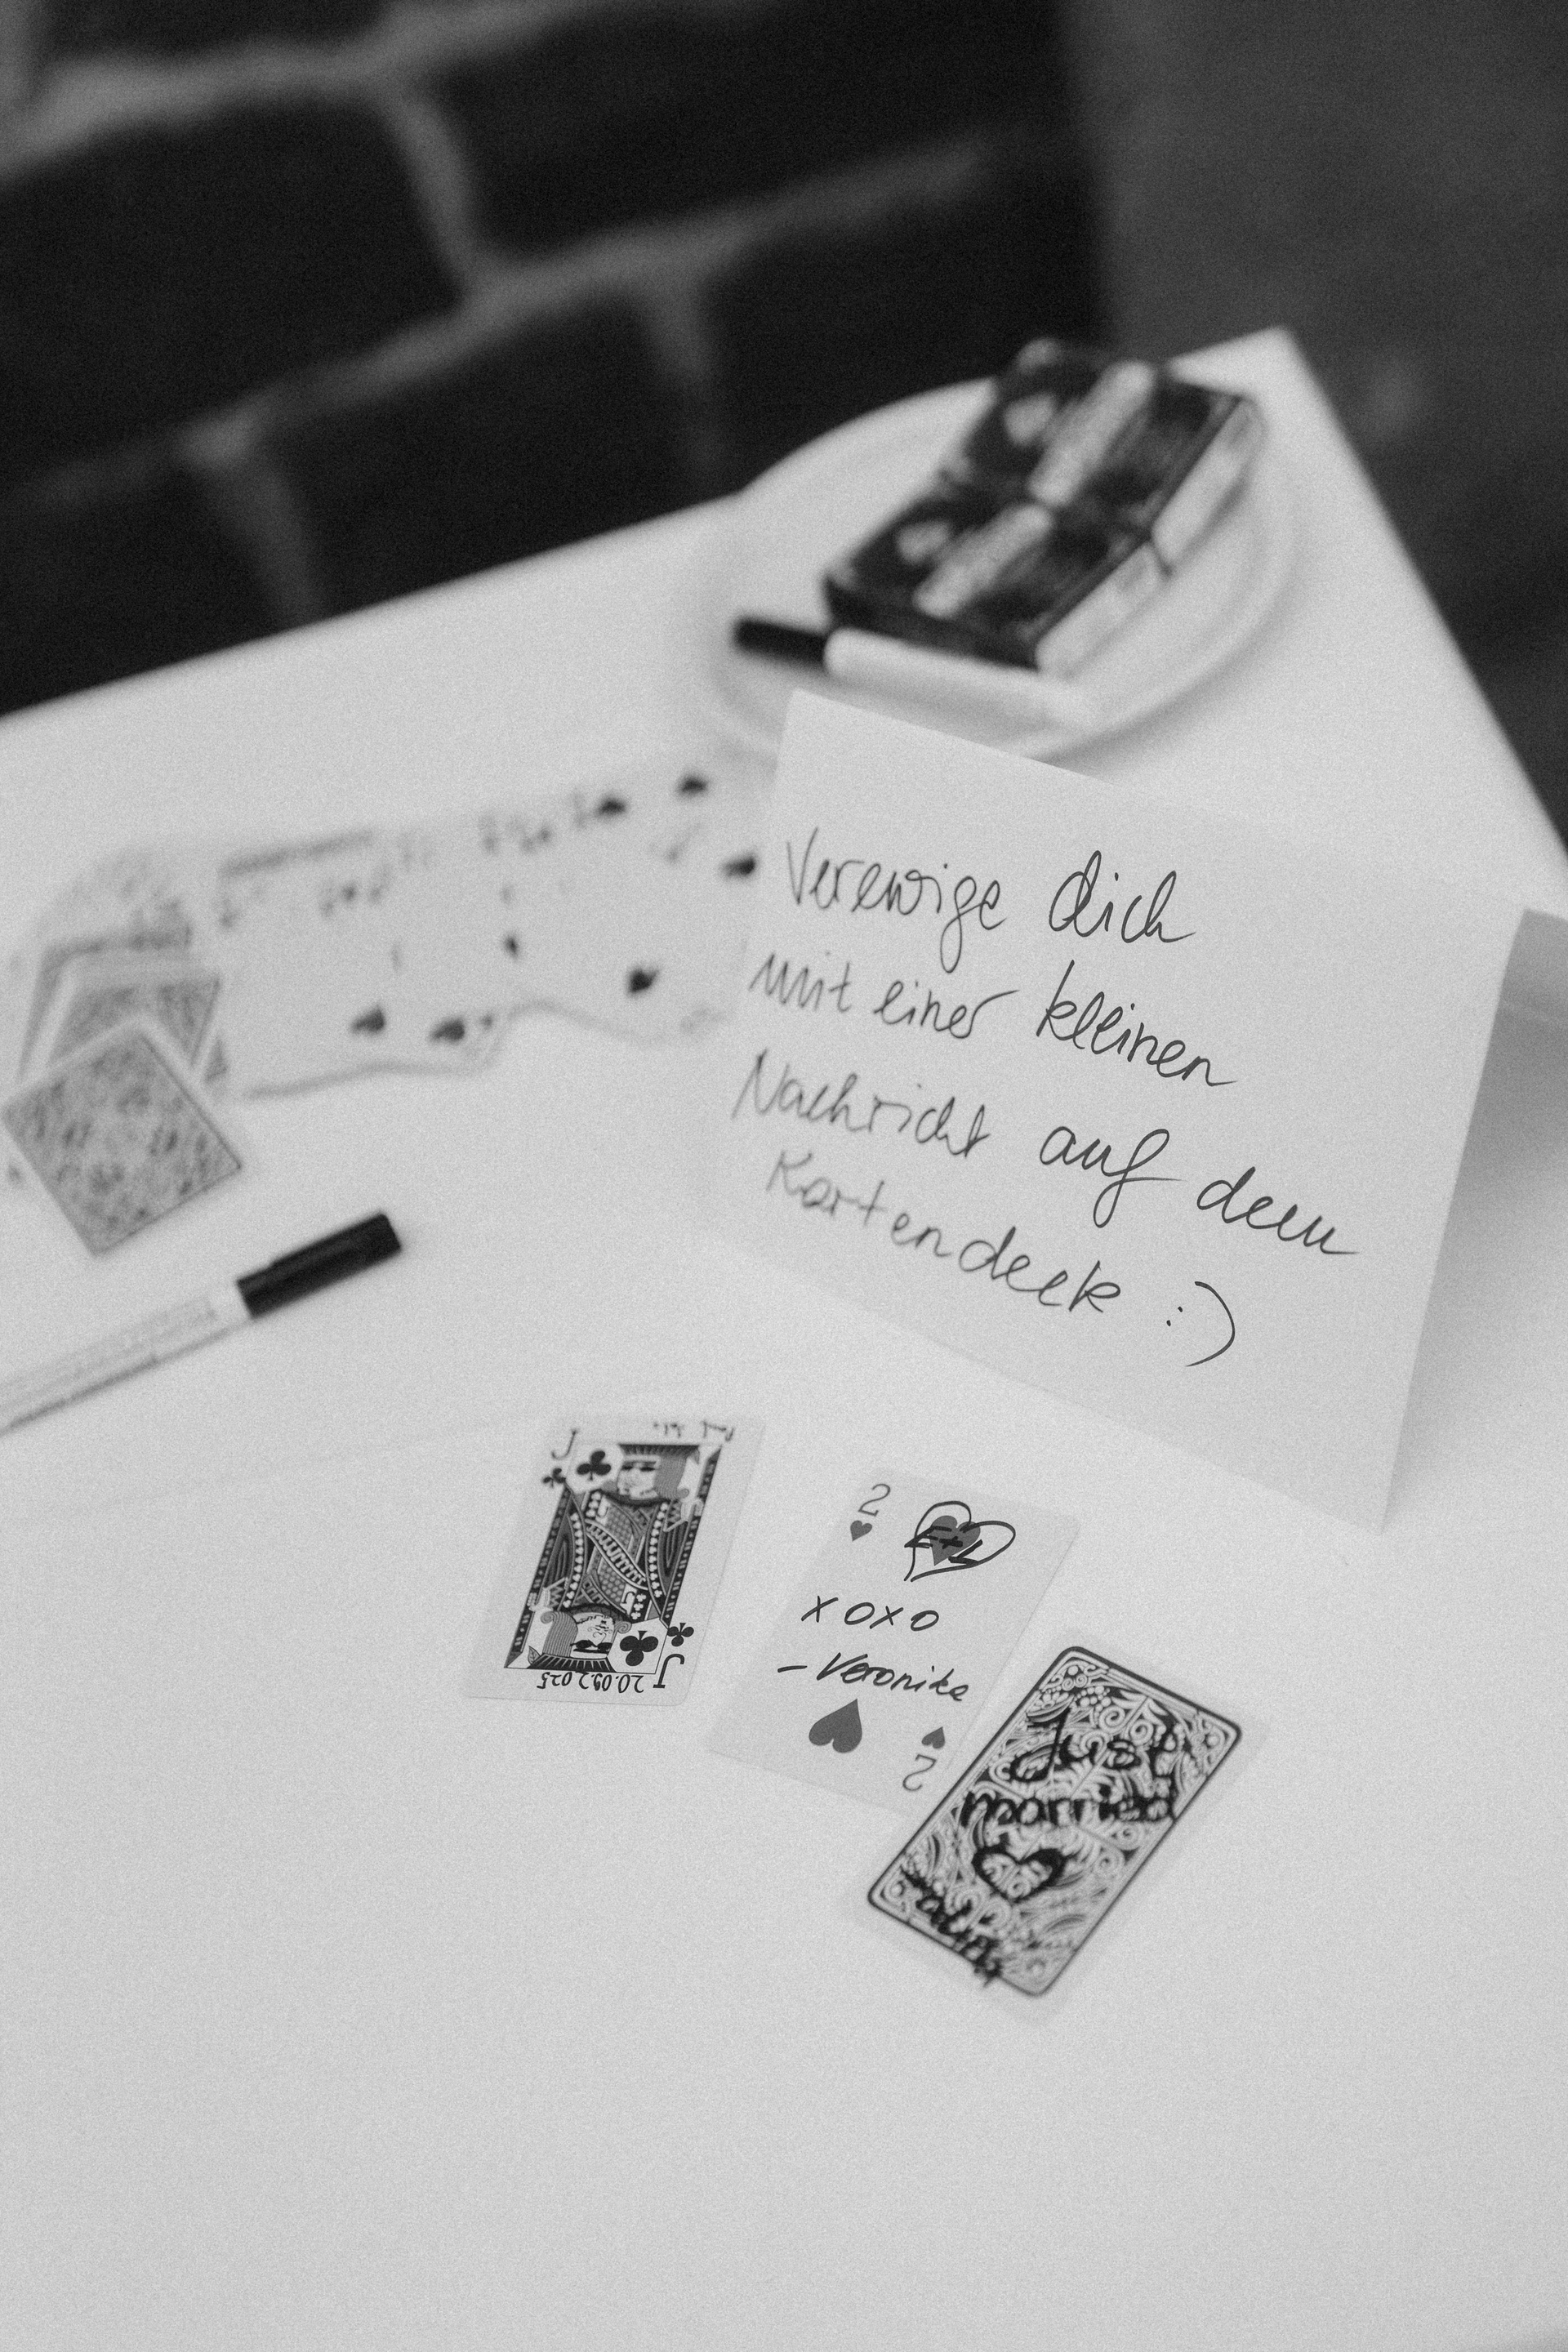 Verewige dich
mit einer kleinen
Nachricht auf dem
Kartendeck :)
J
J
20.09.2025
2
xoxo
- Veronika
2
Just
married